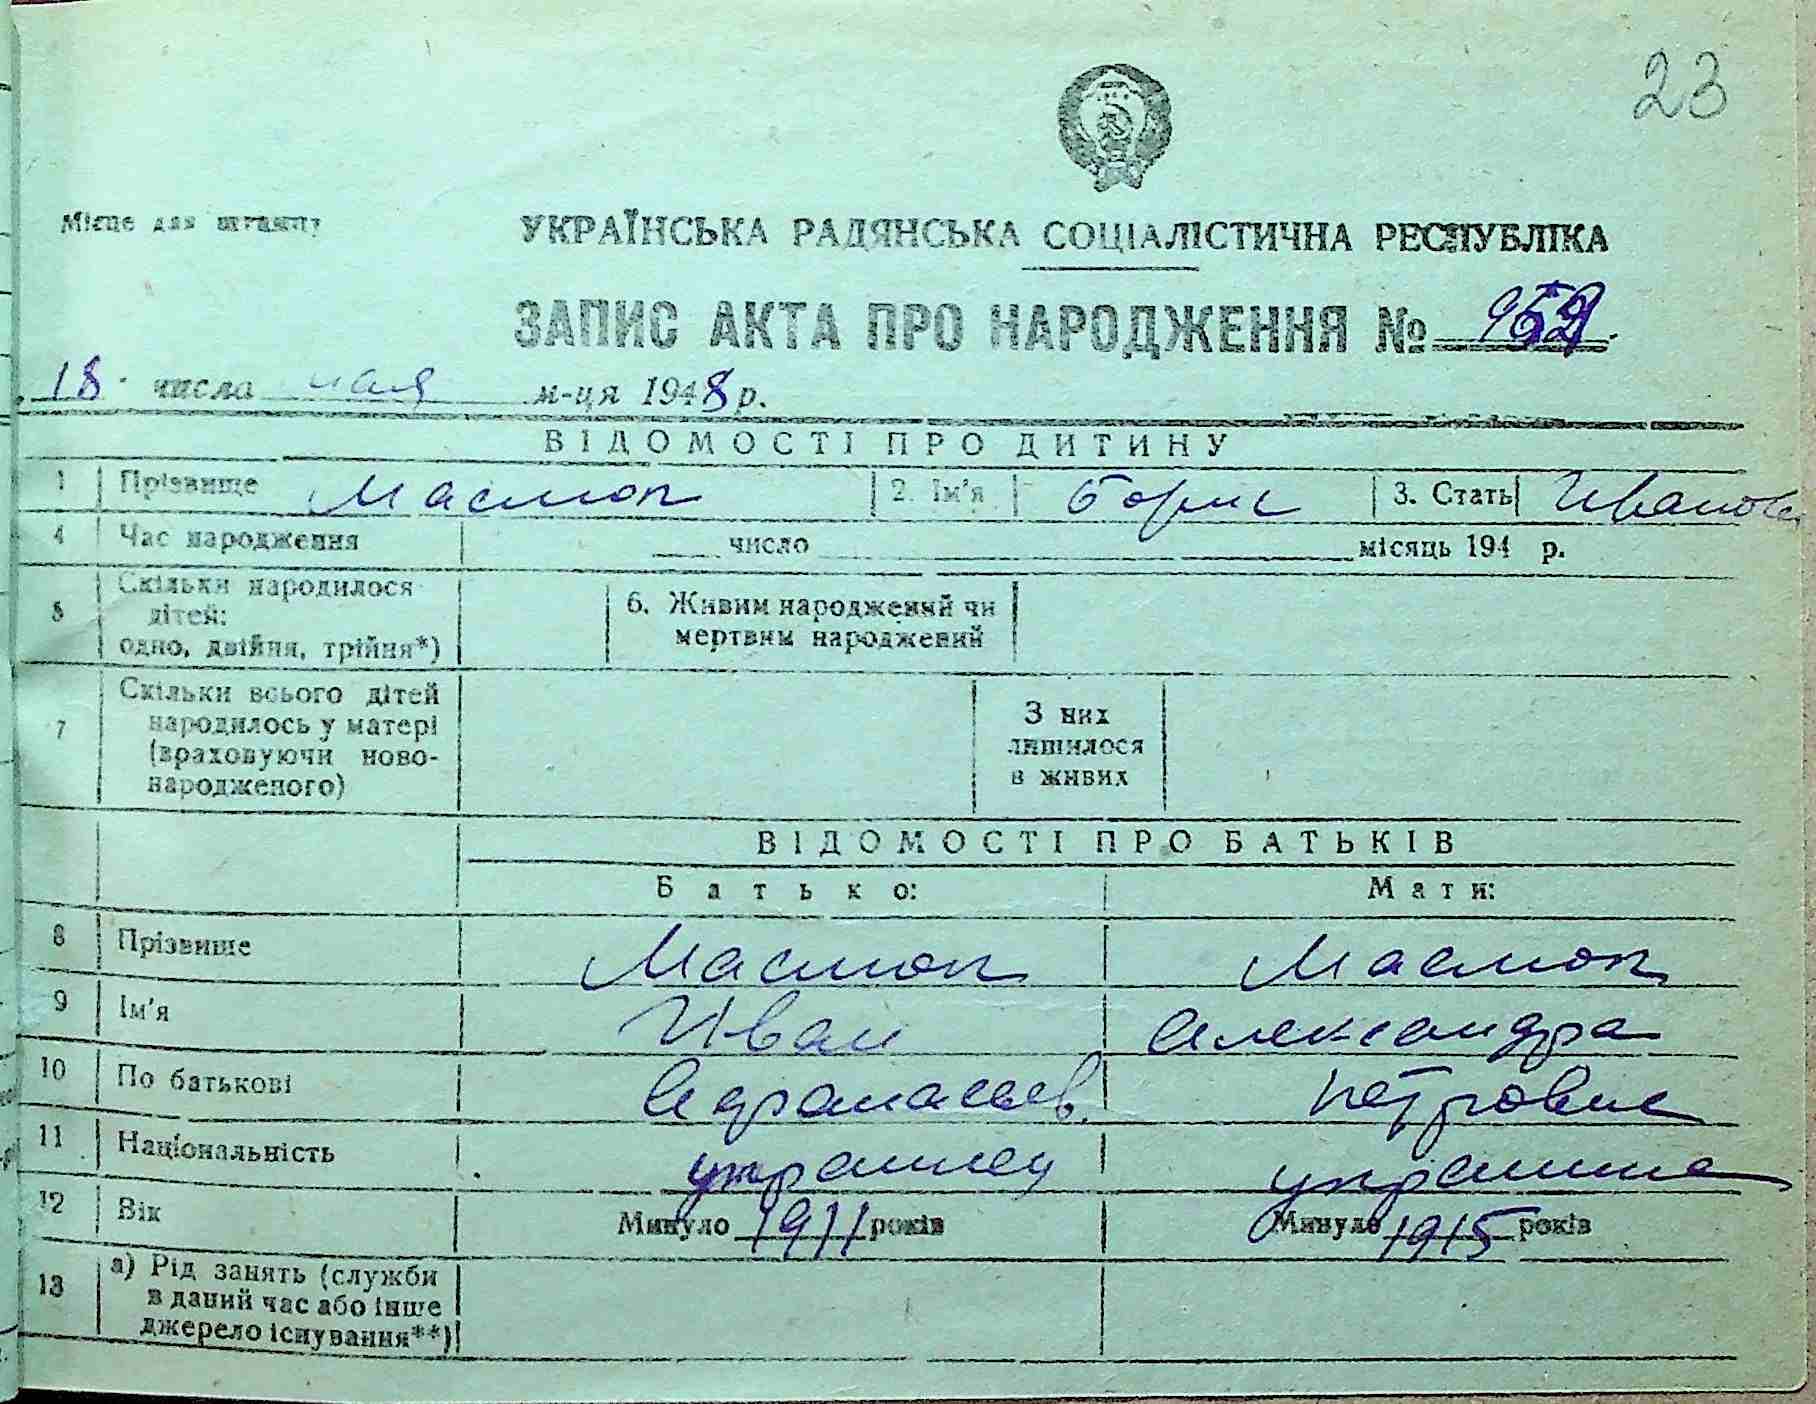 23
Місце для штампу
УКРАЇНСЬКА РАДЯНСЬКА СОЦІАЛІСТИЧНА РЕСПУБЛІКА
ЗАПИС АКТА ПРО НАРОДЖЕННЯ №
18 числа мая м-ця 1948 р.
ВІДОМОСТІ ПРО ДИТИНУ
1 Прізвище Масмоп 2. Ім'я Борис 3. Стать Иванов
4 Час народження число місяць 194 р.
5 Скільки народилося
дітей:
одно, двійня, трійня*)
6. Живим народжений чи
мертвим народжений
7 Скільки всього дітей
народилось у матері
(враховуючи ново-
народженого)
З них
лишилося
в живих
ВІДОМОСТІ ПРО БАТЬКІВ
Батько: Мати:
8 Прізвище Масмоп Масмоп
9 Ім'я Иван Александра
10 По батькові Афанасьев. Петровна
11 Національність украинец украинка
12 Вік Минуло 1911 років Минуло 1915 років
13 а) Рід занять (служби
в даний час або інше
джерело існування**)